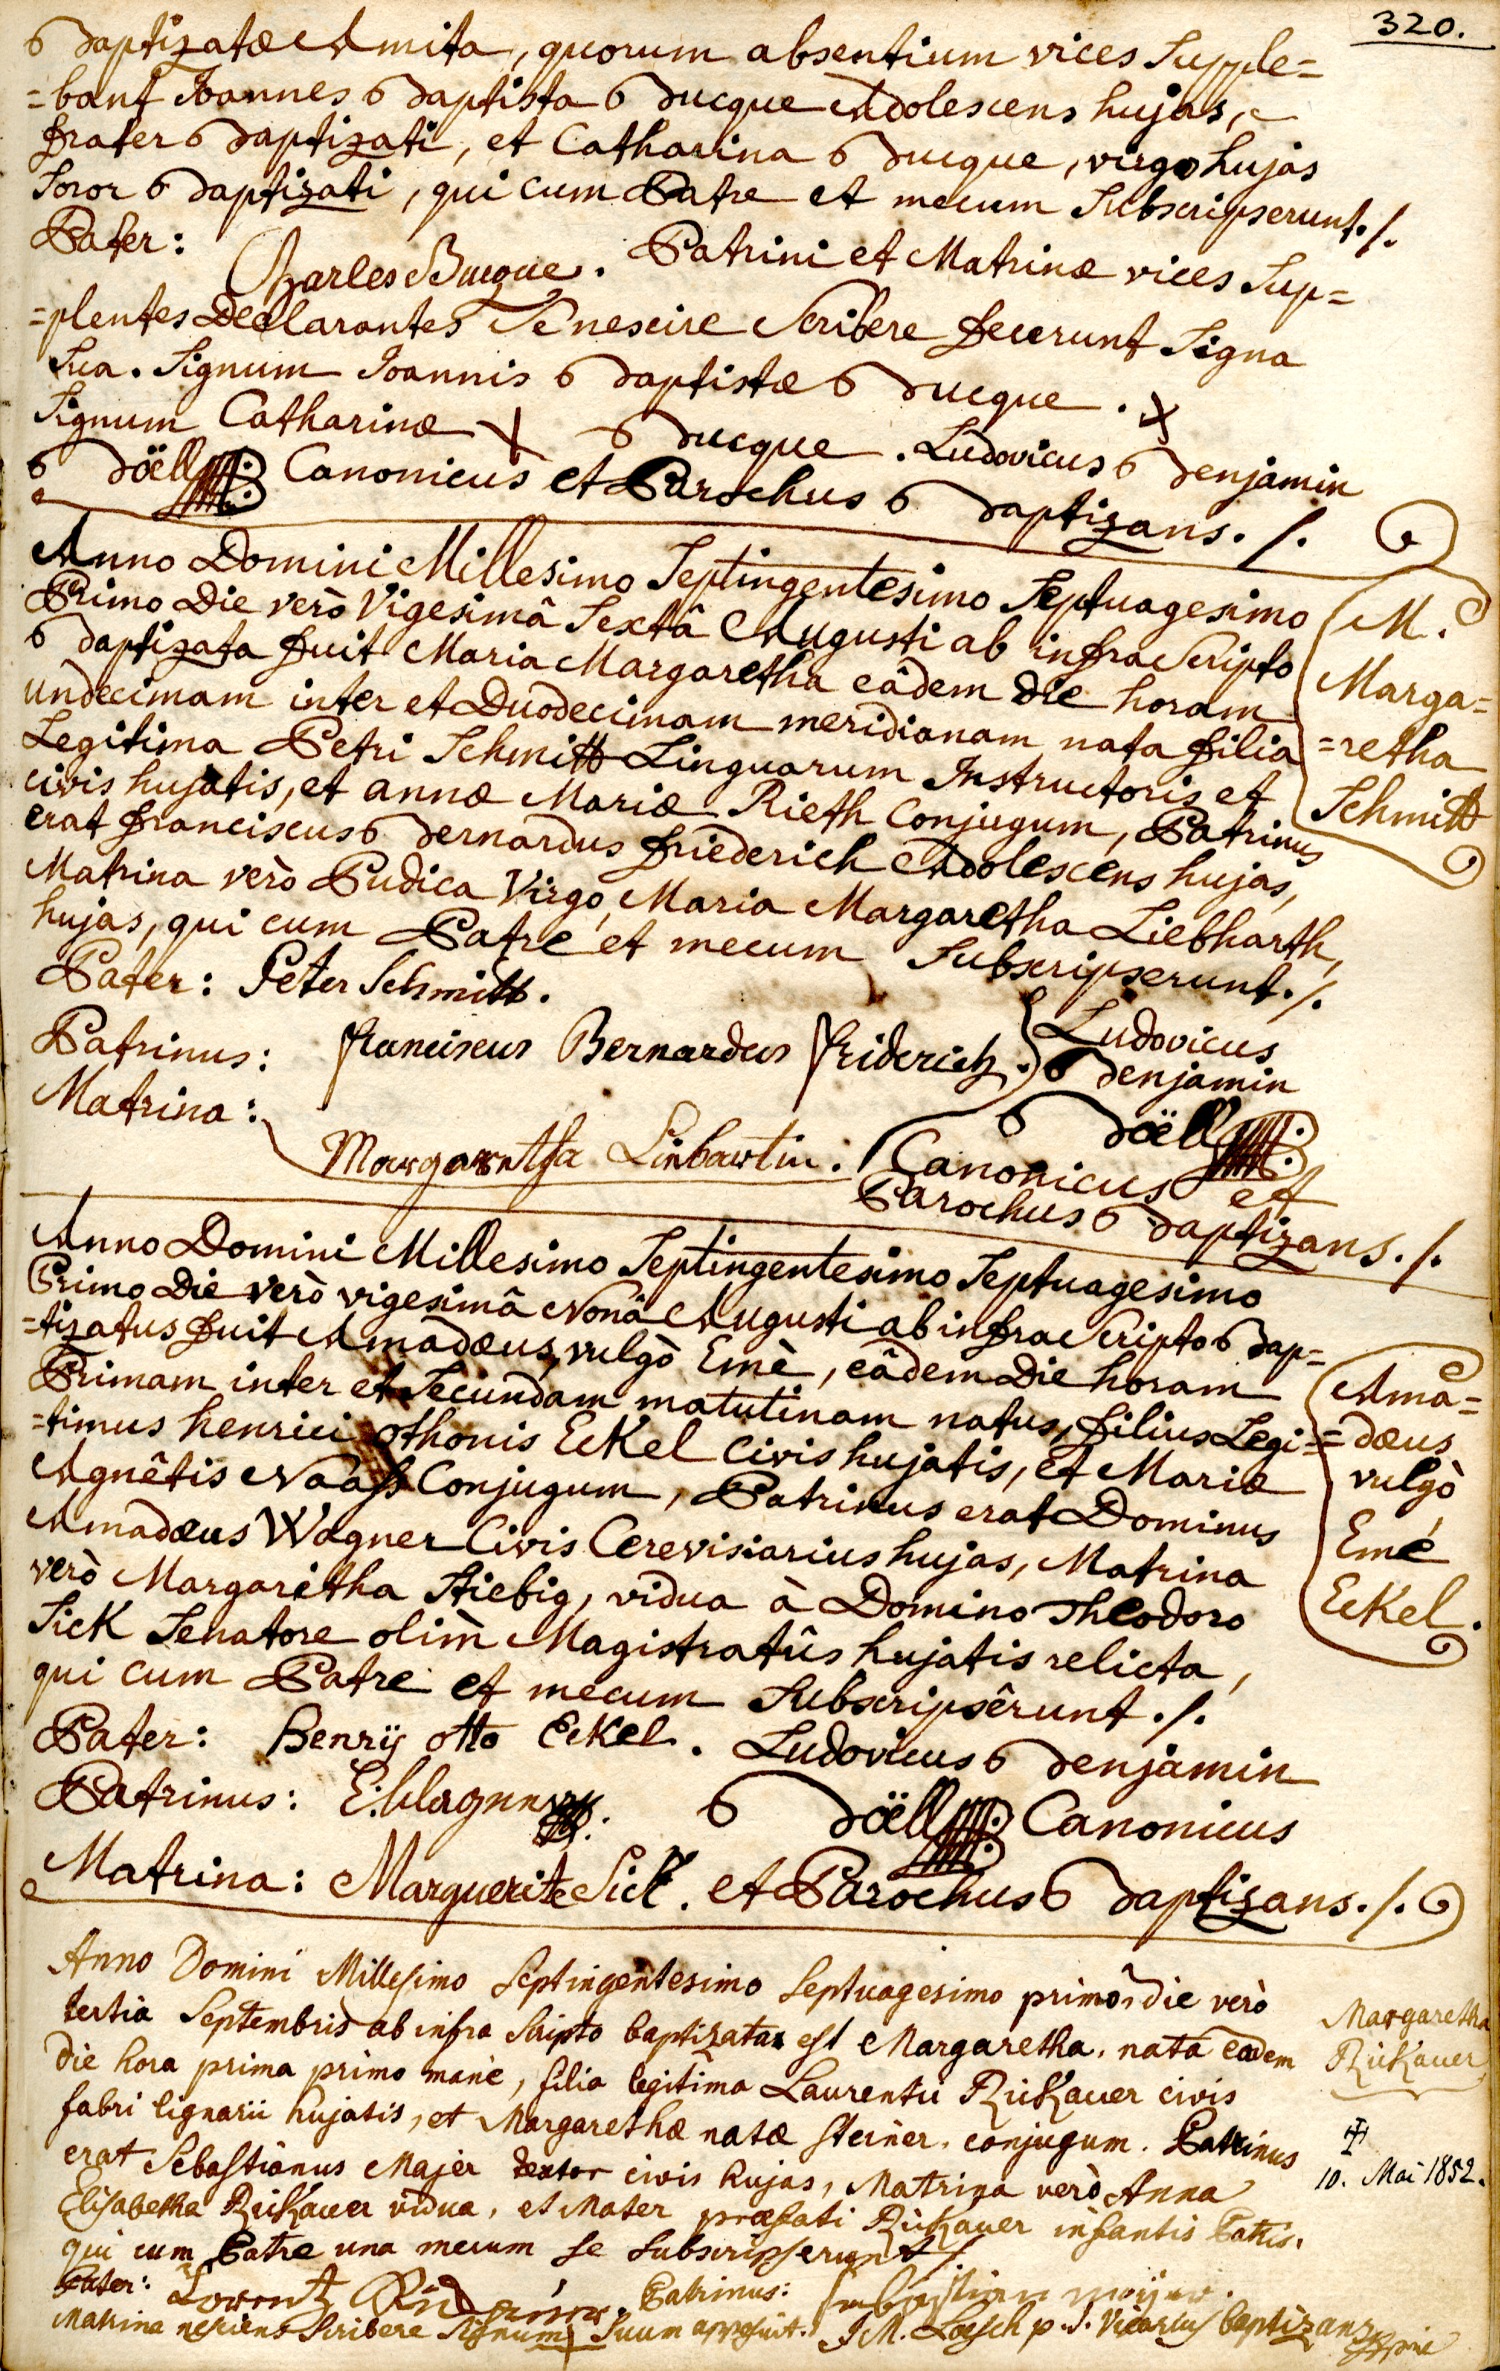 320.
Baptizatæ Amita, quorum absentium vices Supple=
=bant Joannes Baptista Bucque Adolescens hujas,
frater Baptizati, et Catharina Bucque, virgo hujas
Soror Baptizati, qui cum Patre et mecum Subscripserunt./.
Pater: Charles Bucque. Patrini et Matrinæ vices Sup=
=plentes Declarantes Se nescire Scribere fecerunt Signa
Sua. Signum Joannis Baptistæ Bucque. X
Signum Catharinæ X Bucque. Ludovicus Benjamin
Böell Canonicus et Parochus Baptizans./.
Anno Domini Millesimo Septingentesimo Septuagesimo
Primo Die verò Vigesimâ Sextâ Augusti ab infra Scripto
Baptizata fuit Maria Margaretha eâdem die horam
undecimam inter et Duodecimam meridianam nata filia
Legitima Petri Schmitt Linguarum Instructoris et
civis hujatis, et annæ Mariæ Rieth Conjugum, Patrinus
erat franciscus Bernardus friederich Adolescens hujas,
Matrina verò Pudica Virgo, Maria Margaretha Liebharth,
hujas, qui cum Patre et mecum Subscripserunt./.
M.
Marga=
=retha
Schmitt
Pater: Peter Schmitt.
Patrinus: franciscus Bernardus friderich.
Matrina: Margaretha Liebartin.
Ludovicus
Benjamin
Böell
Canonicus et
Parochus Baptizans./.
Anno Domini Millesimo Septingentesimo Septuagesimo
Primo Die verò vigesimâ Nonâ Augusti ab infra Scripto Bap=
=tizatus fuit Amadæus, vulgò Emè, eâdem Die horam
Primam inter et Secundam matutinam natus, filius Legi=
=timus henrici othonis Eckel Civis hujatis, et Mariæ
Agnêtis Naass Conjugum, Patrinus erat Dominus
Amadæus Wagner Civis Cerevisiarius hujas, Matrina
verò Margaritha Stiebig, vidua à Domino Theodoro
Sick Senatore olim Magistratûs hujatis relicta,
qui cum Patre et mecum Subscripsêrunt./.
Ama=
=dæus
vulgò
Emé
Eckel.
Pater: Henrÿ otto Eckel. Ludovicus Benjamin
Patrinus: E: Wagner Böell Canonicus
Matrina: Marguerite Sick. et Parochus Baptizans./.
Anno Domini Millesimo Septingentesimo Septuagesimo primo, die verò
tertia Septembris ab infra Scripto baptizata est Margaretha, nata eadem
die hora prima primo mane, filia legitima Laurentii Rickauer civis
fabri lignarii hujatis, et Margarethæ natæ Steiner, conjugum. Patrinus
erat Sebastianus Majer textor civis hujas, Matrina verò Anna
Elisabetha Rickauer vidua, et Mater præfati Rickauer infantis Patris.
qui cum Patre una mecum se subscripserunt /.
Margaretha
Rickauer
10. Mai 1852.
Pater: Lorentz Patrinus: Sebastian
Matrina nesciens Scribere Signum Suum apposuit. J M. Loesch p. t. Vicarius baptizans